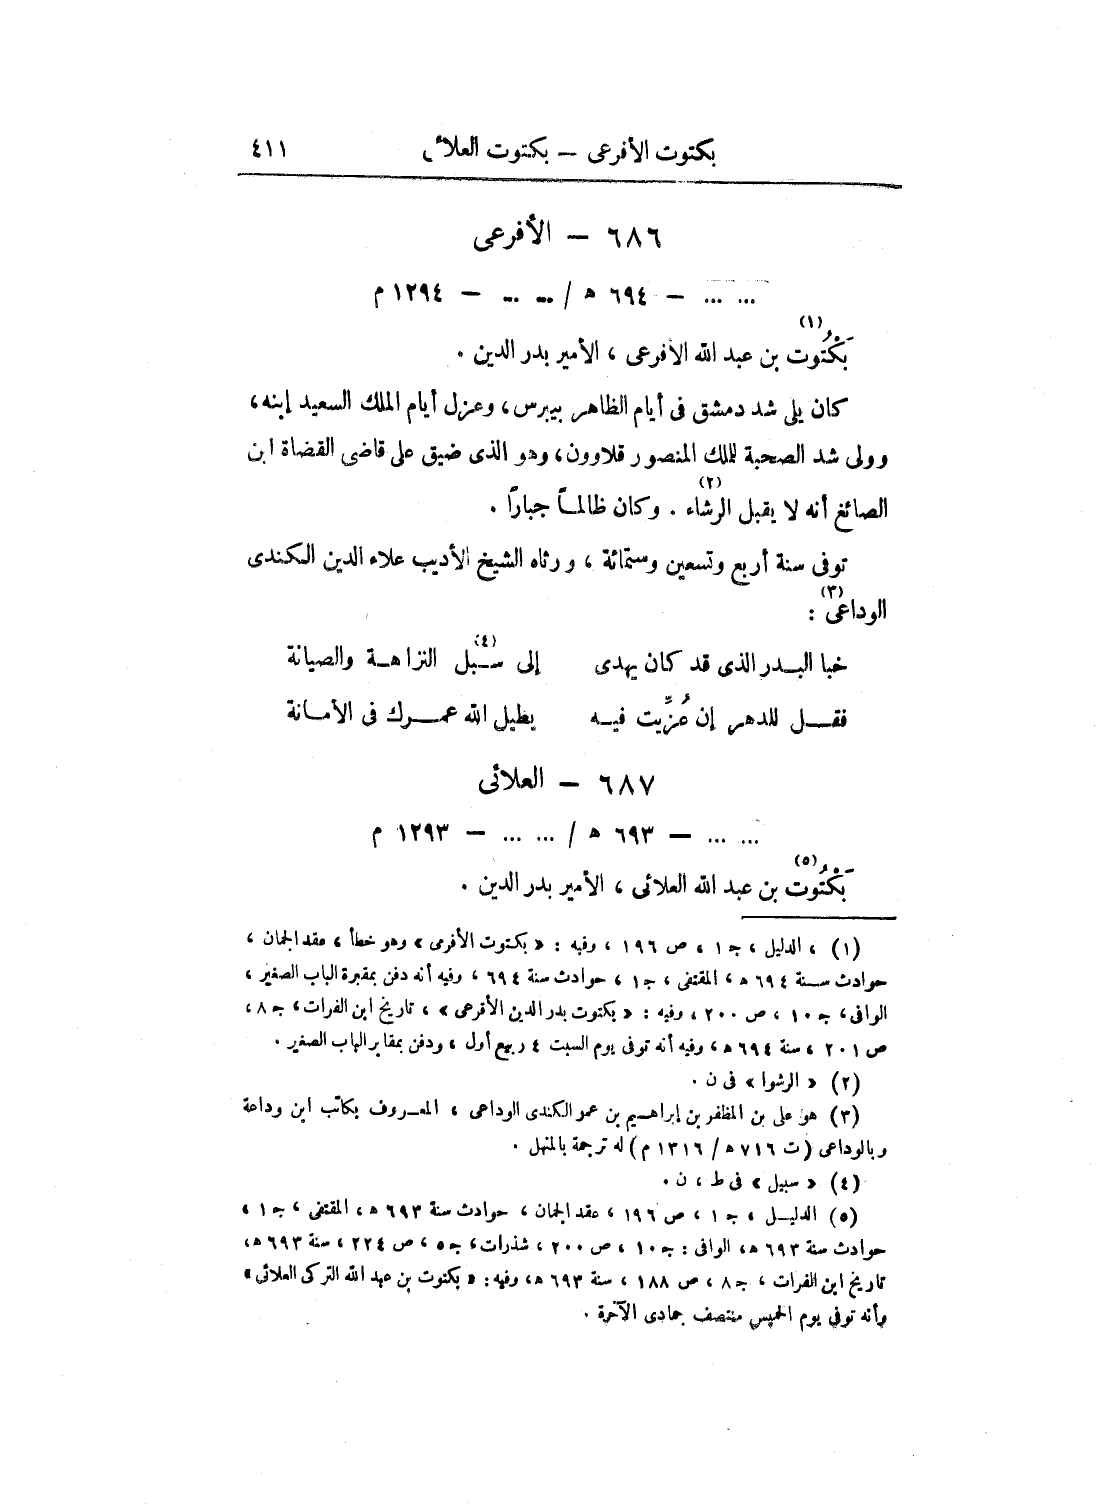 بكتوت الأفرعى – بكتوت العلائى ٤١١
٦٨٦ – الأفرعى
... ... – ٦٩٤ ه / ... ... – ١٢٩٤ م
بَكْتُوت (١) بن عبد الله الأفرعى ، الأمير بدر الدين .
كان يلى شد دمشق فى أيام الظاهر بيبرس ، وعزل أيام الملك السعيد إبنه ،
وولى شد الصحبة للملك المنصور قلاوون ، وهو الذى ضيق على قاضى القضاة ابن
الصائغ أنه لا يقبل الرشاء (٢) . وكان ظالمــاً جبارًا .
توفى سنة أربع وتسعين وستمائة ، ورثاه الشيخ الأديب علاء الدين الكندى
الوداعى (٣) :
خبا البــدر الذى قد كان يهدى إلى ســبل (٤) النزاهــة والصيانة
فقــل للدهر إن عُزِّيت فيــه يطيل الله عمــرك فى الأمــانة
٦٨٧ – العلائى
... ... – ٦٩٣ ه / ... ... – ١٢٩٣ م
بَكْتُوت (٥) بن عبد الله العلائى ، الأمير بدر الدين .
(١) ، الدليل ، ج ١ ، ص ١٩٦ ، وفيه : « بكتوت الأفرمى » وهو خطأ ، عقد الجمان ،
حوادث ســنة ٦٩٤ ه ، المقتفى ، ج ١ ، حوادث سنة ٦٩٤ ، وفيه أنه دفن بمقبرة الباب الصغير ،
الوافى ، ج ١٠ ، ص ٢٠٠ ، وفيه : « بكتوت بدر الدين الأقرعى » ، تاريخ ابن الفرات ، ج ٨ ،
ص ٢٠١ ، سنة ٦٩٤ ه ، وفيه أنه توفى يوم السبت ٤ ربيع أول ، ودفن بمقابر الباب الصغير .
(٢) « الرشوا » فى ن .
(٣) هو على بن المظفر بن إبراهــيم بن عمو الكندى الوداعى ، المعــروف بكاتب ابن وداعة
وبالوداعى (ت ٧١٦ ه / ١٣١٦ م) له ترجمة بالمنهل .
(٤) « سبيل » فى ط ، ن .
(٥) الدليــل ، ج ١ ، ص ١٩٦ ، عقد الجمان ، حوادث سنة ٦٩٣ ه ، المقتفى ، ج ١ ،
حوادث سنة ٦٩٣ ه ، الوافى : ج ١٠ ، ص ٢٠٠ ، شذرات ، ج ٥ ، ص ٢٢٤ ، سنة ٦٩٣ ه ،
تاريخ ابن الفرات ، ج ٨ ، ص ١٨٨ ، سنة ٦٩٣ ه ، وفيه : « بكتوت بن عبد الله التركى العلائى »
وأنه توفى يوم الخميس منتصف جمادى الآخرة .